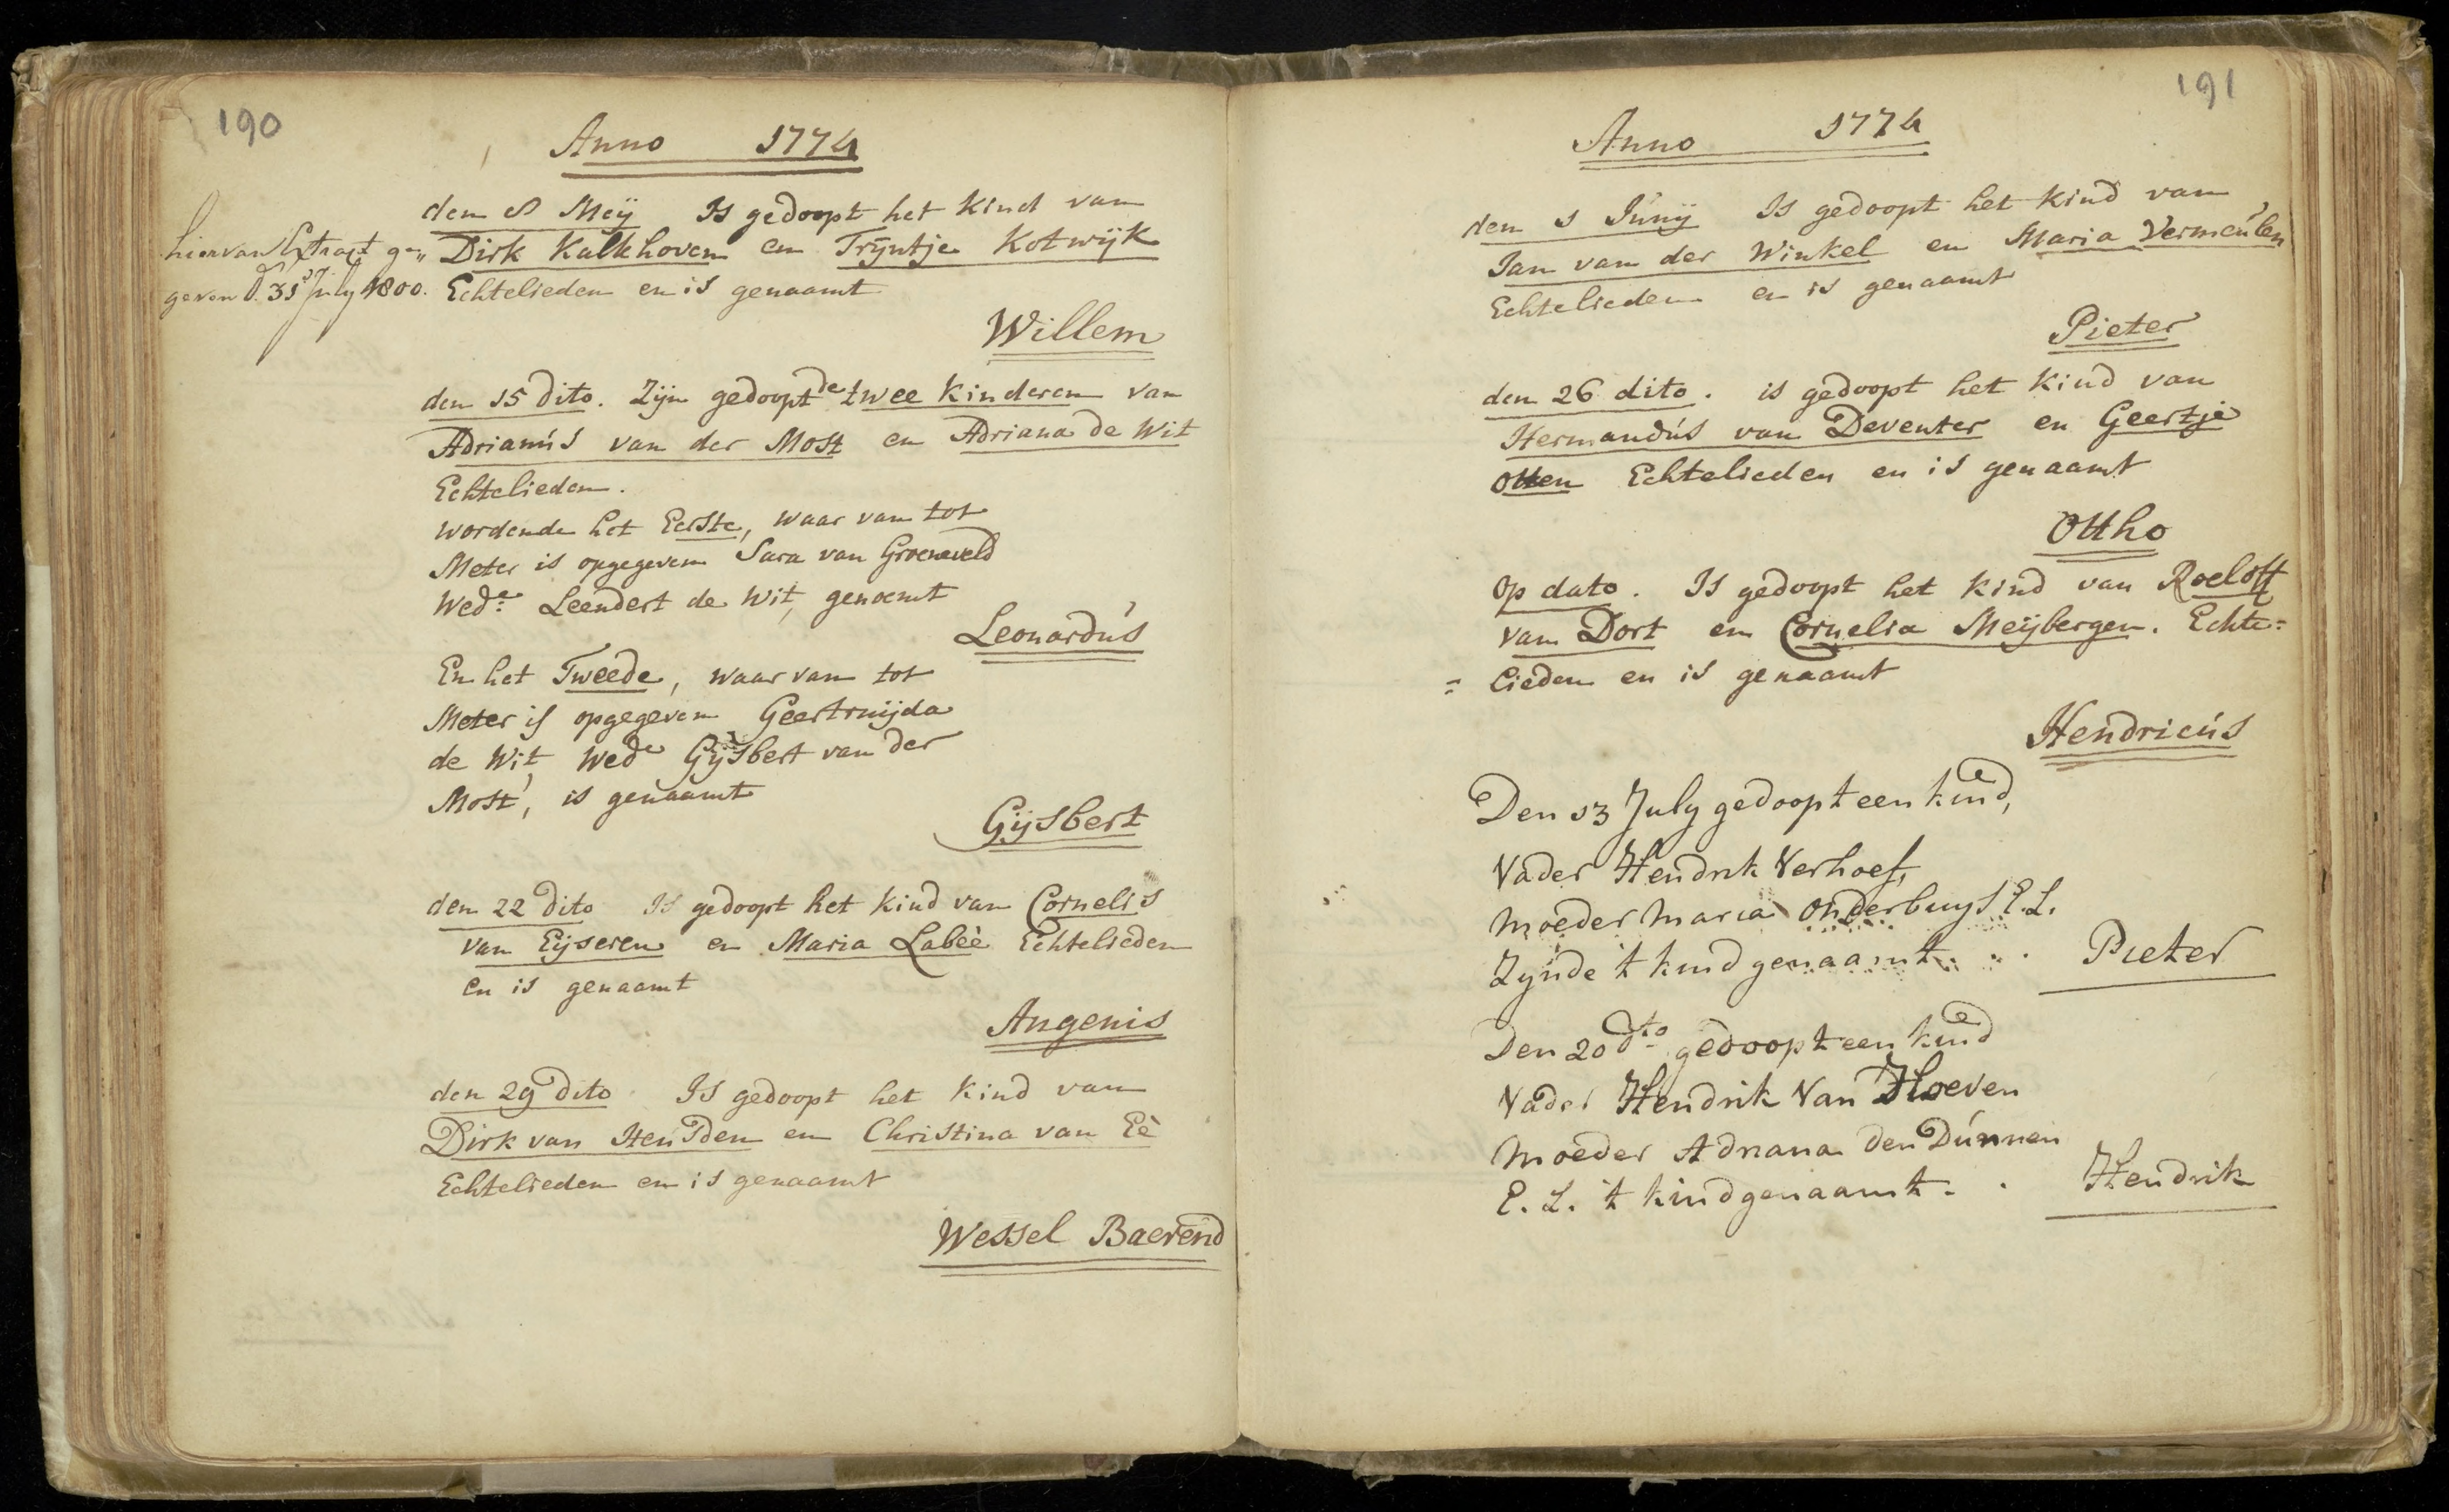 190
Anno 1774
den 8 Meÿ Is gedoopt het Kind van
hiervan Extract ge„ Dirk Kalkhoven en Trÿntje Kotwÿk
geven d. 31 July 1800. Echtelieden en is genaamt
Willem
den 15 dito. Zijn gedoopt de twee Kinderen van
Adrianús van der Most en Adriana de Wit
Echtelieden.
wordende het Eerste, waar van tot
Meter is opgegeven Sara van Groeneveld
Wede: Leendert de Wit, genoemt
Leonardús
En het Tweede, waar van tot
Meter is opgegeven Geertruijda
de Wit, Wede Gÿsbert van der
Most, is genaamt
Gijsbert
den 22 dito Is gedoopt het Kind van Cornelis
van Eijseren en Maria Labeè Echtelieden
en is genaamt
Angenis
den 29 dito Is gedoopt het Kind van
Dirk van Heúsden en Christina van Eè
Echtelieden en is genaamt
Wessel Baerend
191
Anno 1774
den 1 Júnÿ Is gedoopt het Kind van
Jan van der Winkel en Maria Vermeúlen
Echtelieden en is genaamt
Pieter
den 26 dito. is gedoopt het Kind van
Hermandús van Deventer en Geertje
Otten Echtelieden en is genaamt
Ottho
op dato. Is gedoopt het Kind van Roeloff
van Dort en Cornelia Meijbergen. Echte=
= lieden en is genaamt
Hendricús
Den 13 July gedoopt een kind,
Vader Hendrik Verhoef,
Moeder Maria Onderbuys E.L.
Zynde 't kind genaamt . . . Pieter
Den 20 dto gedoopt een kind
Vader Hendrik Van Hoeven
Moeder Adriana den Dúnnen
E. L. 't kind genaamt . . Hendrik